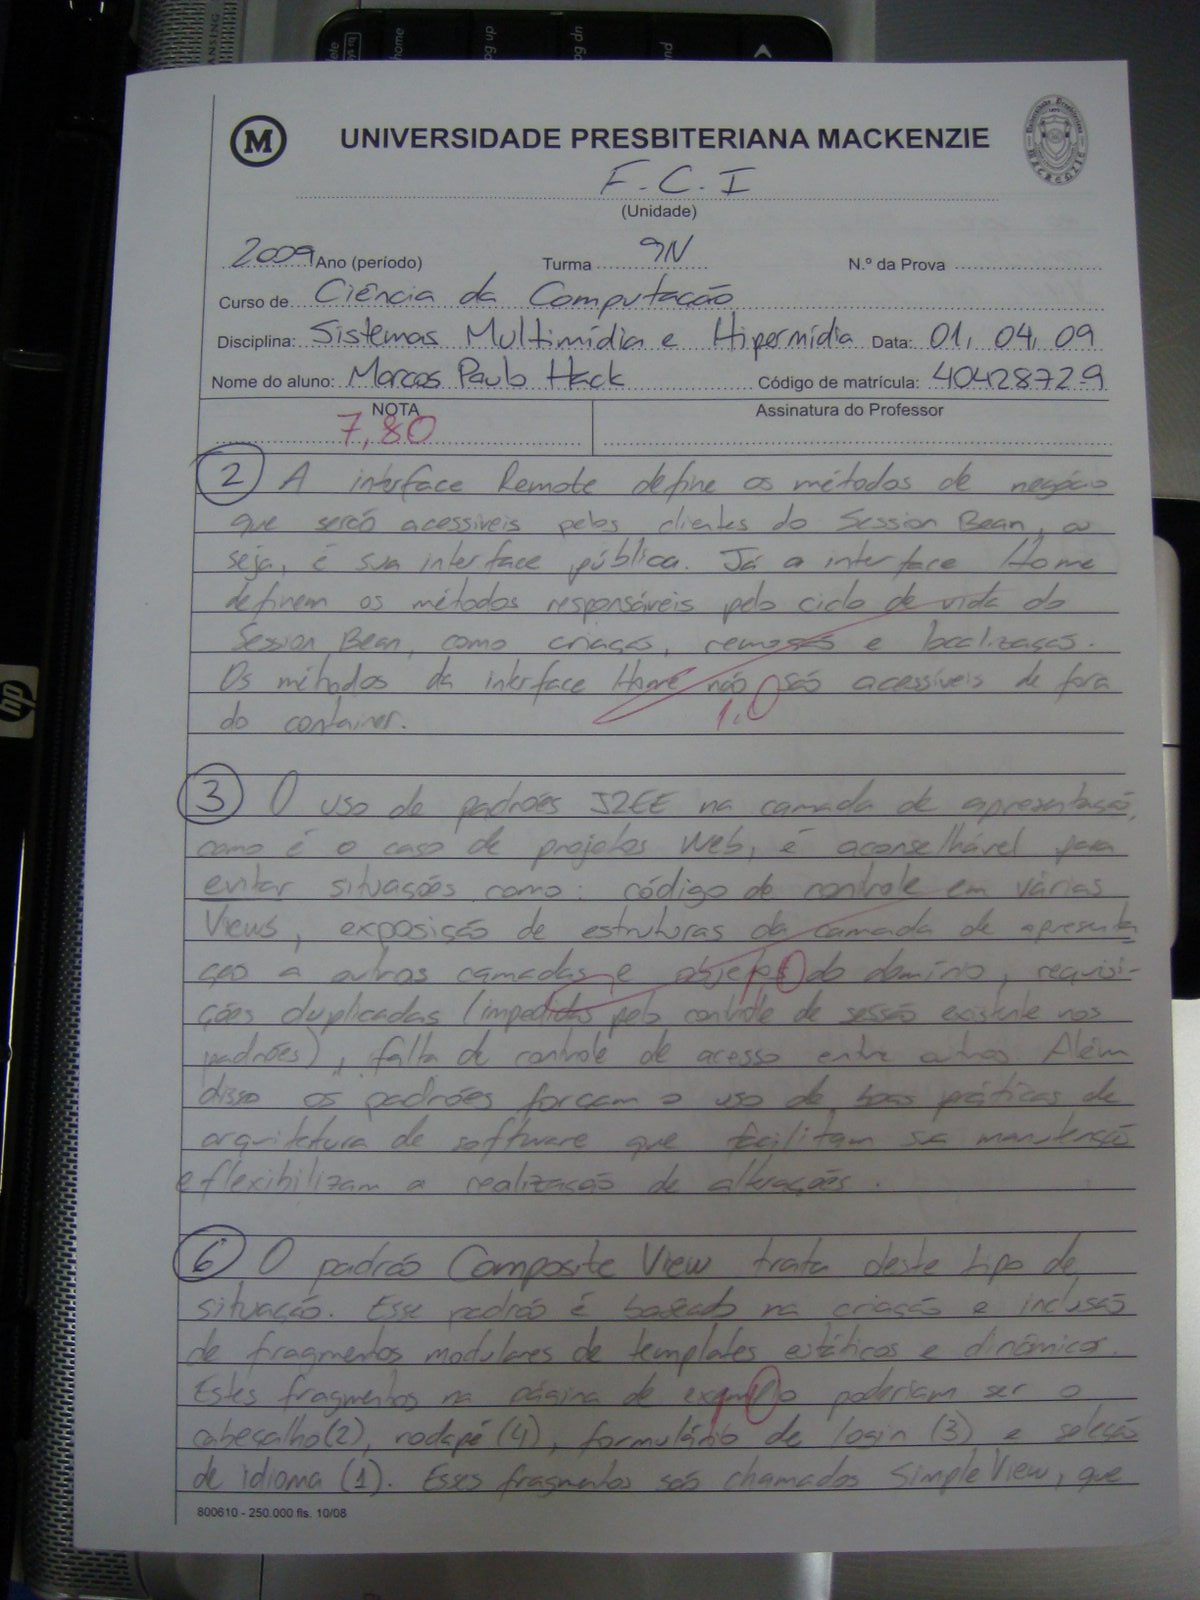 M UNIVERSIDADE PRESBITERIANA MACKENZIE
F.C.I
(Unidade)
2009 Ano (período) Turma 9N N.º da Prova
Curso de Ciência da Computação
Disciplina: Sistemas Multimídia e Hipermídia Data: 01, 04, 09
Nome do aluno: Marcos Paulo Hack Código de matrícula: 4042872-9
NOTA Assinatura do Professor
7,80
2 A interface Remote define os métodos de negócio
que serão acessíveis pelos clientes do Session Bean, ou
seja, é sua interface pública. Já a interface Home
definem os métodos responsáveis pelo ciclo de vida do
Session Bean, como criação, remoção e localização.
Os métodos da interface Home não são acessíveis de fora
do container.
1,0
3 O uso de padrões J2EE na camada de apresentação,
como é o caso de projetos Web, é aconselhável para
evitar situações como: código de controle em várias
Views, exposição de estruturas da camada de apresenta-
ção a outras camadas e objetos do domínio, requisi-
ções duplicadas (impedidas pelo controle de sessão existente nos
padrões), falta de controle de acesso entre outros. Além
disso os padrões forçam o uso de boas práticas de
arquitetura de software que facilitam sua manutenção
e flexibilizam a realização de alterações.
6 O padrão Composite View trata deste tipo de
situação. Esse padrão é baseado na criação e inclusão
de fragmentos modulares de templates estáticos e dinâmicos.
Estes fragmentos na página de exemplo poderiam ser o
cabeçalho (2), rodapé (4), formulário de login (3) e seleção
de idioma (1). Esses fragmentos são chamados SimpleView, que
800610 - 250.000 fls. 10/08